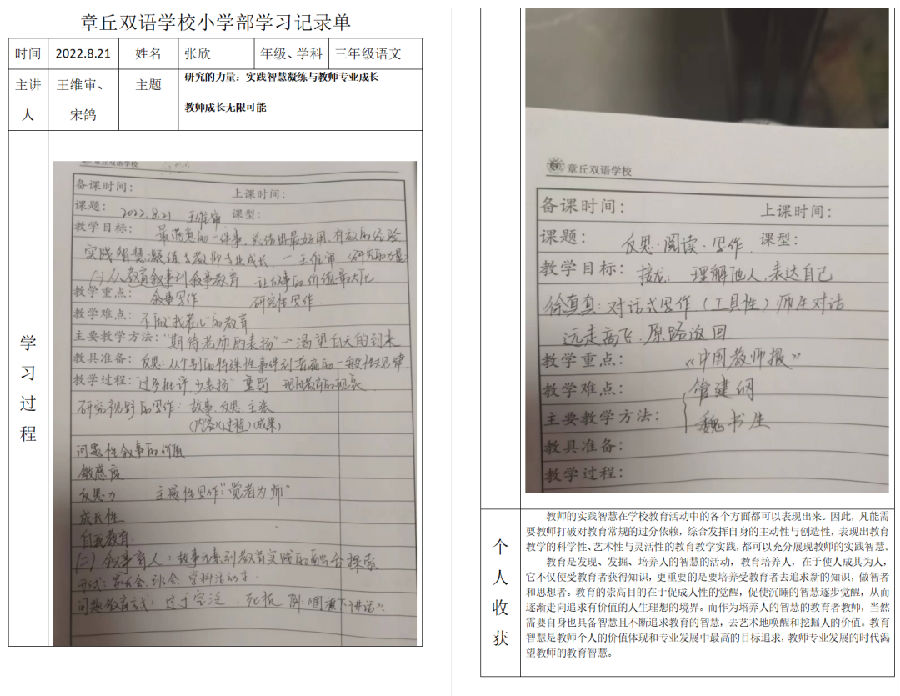 章丘双语学校小学部学习记录单
时间 2022.8.21 姓名 张欣 年级、学科 三年级语文
主讲人 王维审、宋鸽 主题 研究的力量：实践智慧凝练与教师专业成长
教师成长无限可能
学习过程
章丘双语学校
备课时间： 上课时间：
课题： 2022.8.21 王维审 课型：
教学目标： 最满意的一件事，总结出最好用、有效的经验
实践智慧凝练与教师专业成长 — 王维审
(一)从教育叙事到叙事教育
教学重点： 叙事写作 研究性写作
教学难点：
主要教学方法： "期待老师的表扬"
教具准备： 反思：从个别的特殊性事件到
教学过程： "过多批评，少表扬" 重点
研究视野的写作：故事、反思、主张
(内容)(过程)(成果)
问题性叙事的价值
敏感度
反思力 主题性写作"觉者为师"
成长性
自我教育
(二)叙事育人：故事元素到教育实践的融合探索
问题教育方式：
章丘双语学校
备课时间： 上课时间：
课题： 反思·阅读·写作 课型：
教学目标： 接龙 理解他人，表达自己
徐真真：对话式写作（工具性）师生对话
远走高飞，原路返回
教学重点： 《中国教师报》
教学难点： 管建刚
主要教学方法： 魏书生
教具准备：
教学过程：
个人收获
教师的实践智慧在学校教育活动中的各个方面都可以表现出来。因此，凡能需要教师打破对教育常规的过分依赖，综合发挥自身的主动性与创造性，表现出教育教学的科学性、艺术性与灵活性的教育教学实践，都可以充分展现教师的实践智慧。
教育是发现、发掘、培养人的智慧的活动，教育培养人，在于使人成其为人，它不仅使受教育者获得知识，更重要的是要培养受教育者去追求新的知识，做智者和思想者；教育的崇高目的在于促成人性的觉醒，促使沉睡的智慧逐步觉醒，从而逐渐走向追求有价值的人生理想的境界。而作为培养人的智慧的教育者教师，当然需要自身也具备智慧且不断追求教育的智慧，去艺术地唤醒和挖掘人的价值。教育智慧是教师个人的价值体现和专业发展中最高的目标追求，教师专业发展的时代渴望教师的教育智慧。